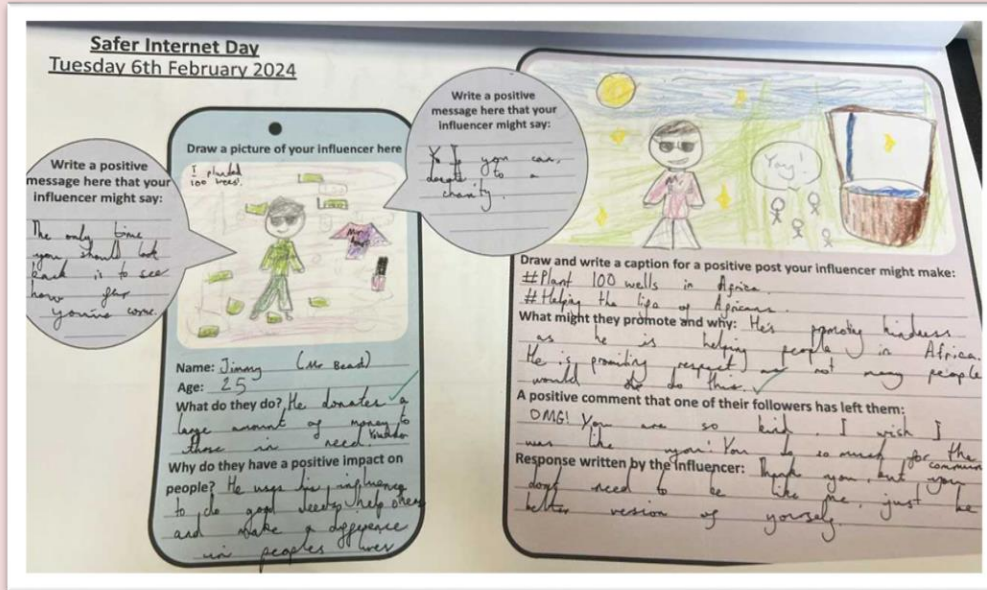 Safer Internet Day
Tuesday 6th February 2024
Write a positive
message here that your
influencer might say:
The only time
you should look
back is to see
how far
you've come.
Draw a picture of your influencer here
I planted
100 trees!
Name: Jimmy (Mr Beast)
Age: 25
What do they do? He donates a
large amount of money to
those in need. Youtuber
Why do they have a positive impact on
people? He uses his influence
to do good deeds, help others
and make a difference
in peoples lives
Write a positive
message here that your
influencer might say:
If you can,
donate to a
charity.
Yay!
Draw and write a caption for a positive post your influencer might make:
#Plant 100 wells in Africa.
#Helping the life of Africans.
What might they promote and why: He's promoting kindness
as he is helping people in Africa.
He is promiting respect as not many people
would do this.
A positive comment that one of their followers has left them:
OMG! You are so kind. I wish I
was like you! You do so much for the
commun
Response written by the influencer: Thank you, but you
dont need to be like me, just be
better version of yourself.